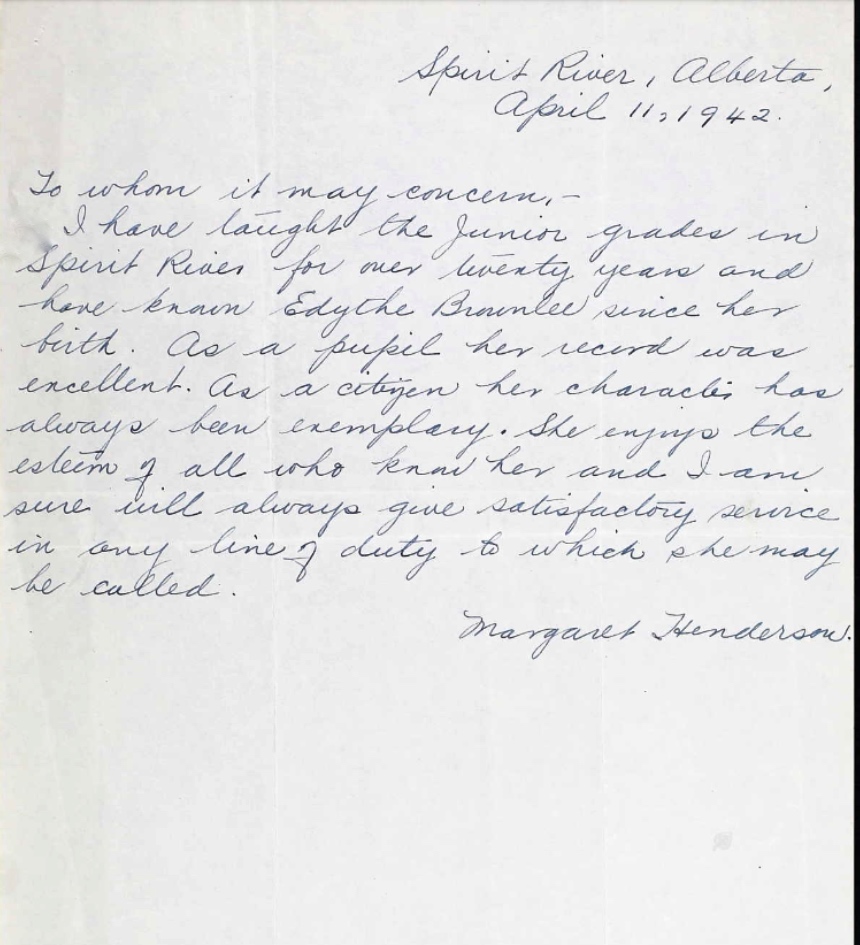 Spirit River, Alberta,
April 11, 1942.
To whom it may concern,-
I have taught the Junior grades in
Spirit River for over twenty years and
have known Edythe Brownlee since her
birth. As a pupil her record was
excellent. As a citizen her character has
always been exemplary. She enjoys the
esteem of all who know her and I am
sure will always give satisfactory service
in any line of duty to which she may
be called.
Margaret Henderson.